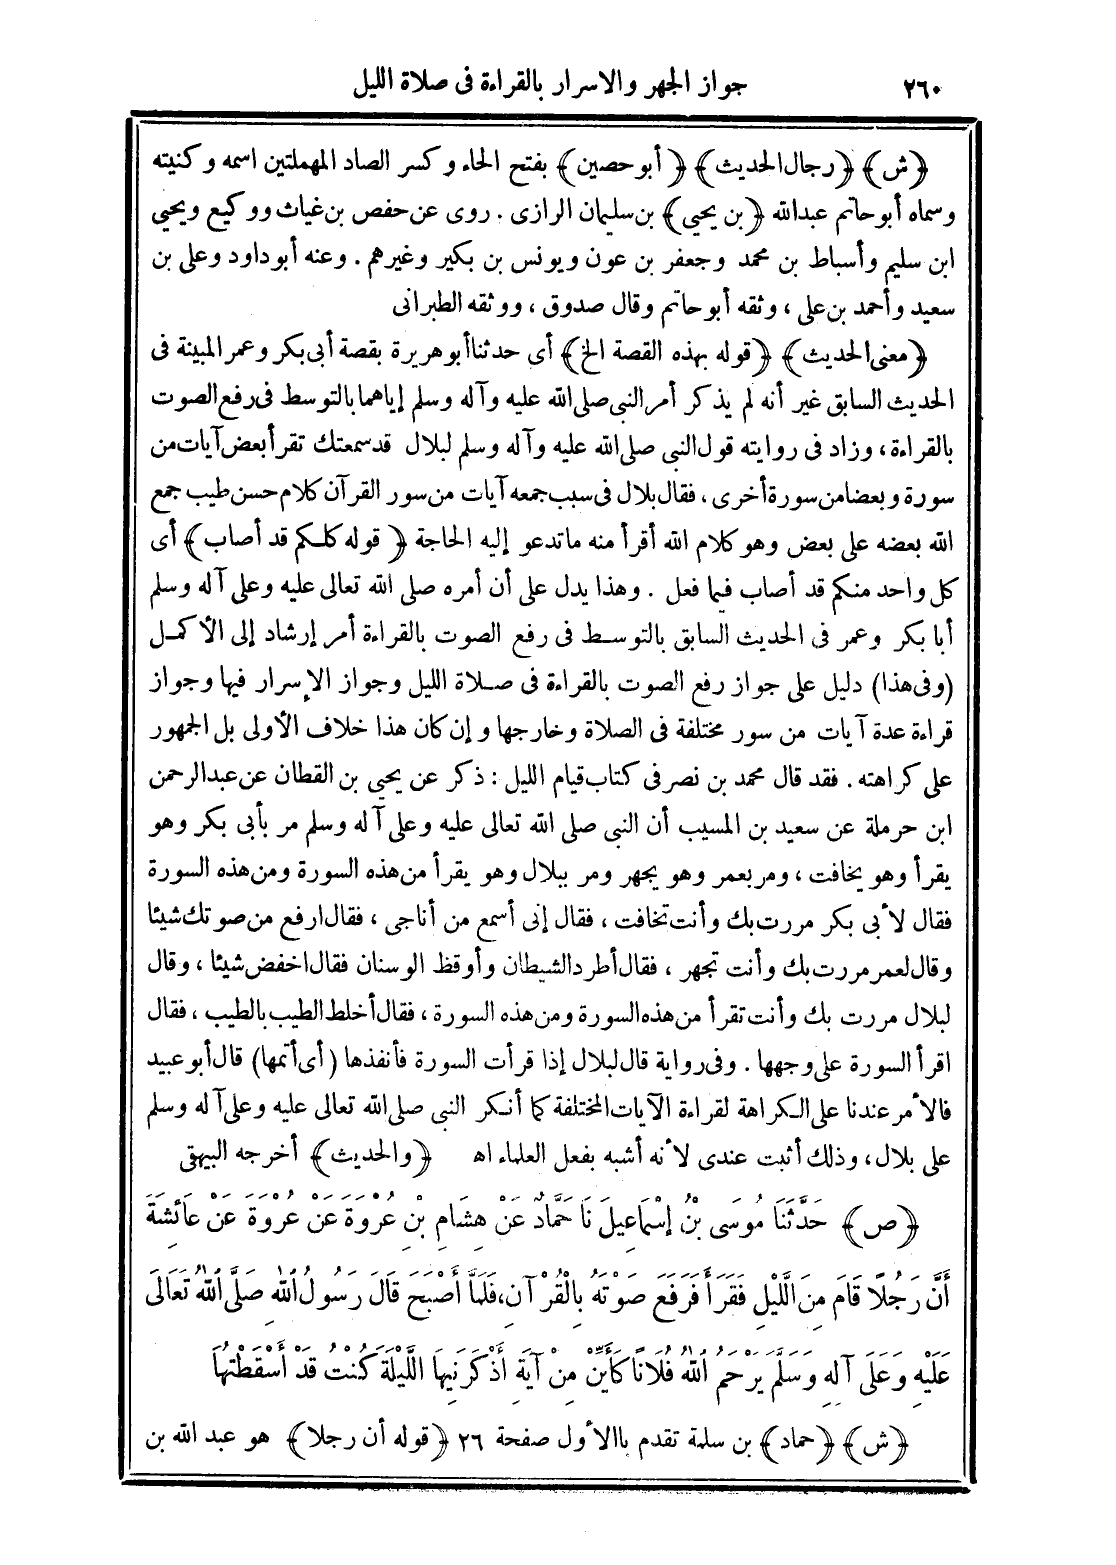 ٢٦٠
جواز الجهر والاسرار بالقراءة فى صلاة الليل
﴿ش﴾ ﴿رجال الحديث﴾ ﴿أبو حصين﴾ بفتح الحاء وكسر الصاد المهملتين اسمه وكنيته
وسماه أبو حاتم عبدالله ﴿بن يحيى﴾ بن سليمان الرازى . روى عن حفص بن غياث ووكيع ويحيى
ابن سليم وأسباط بن محمد وجعفر بن عون ويونس بن بكير وغيرهم . وعنه أبو داود وعلى بن
سعيد وأحمد بن على ، وثقه أبو حاتم وقال صدوق ، ووثقه الطبرانى
﴿معنى الحديث﴾ ﴿قوله بهذه القصة الخ﴾ أى حدثنا أبو هريرة بقصة أبى بكر وعمر المبينة فى
الحديث السابق غير أنه لم يذكر أمر النبى صلى الله عليه وآله وسلم إياهما بالتوسط فى رفع الصوت
بالقراءة ، وزاد فى روايته قول النبى صلى الله عليه وآله وسلم لبلال قد سمعتك تقرأ بعض آيات من
سورة وبعضا من سورة أخرى ، فقال بلال فى سبب جمعه آيات من سور القرآن كلام حسن طيب جمع
الله بعضه على بعض وهو كلام الله أقرأ منه ما تدعو إليه الحاجة ﴿قوله كلكم قد أصاب﴾ أى
كل واحد منكم قد أصاب فيما فعل . وهذا يدل على أن أمره صلى الله تعالى عليه وعلى آله وسلم
أبا بكر وعمر فى الحديث السابق بالتوسط فى رفع الصوت بالقراءة أمر إرشاد إلى الأكمل
(وفى هذا) دليل على جواز رفع الصوت بالقراءة فى صلاة الليل وجواز الإسرار فيها وجواز
قراءة عدة آيات من سور مختلفة فى الصلاة وخارجها وإن كان هذا خلاف الأولى بل الجمهور
على كراهته . فقد قال محمد بن نصر فى كتاب قيام الليل : ذكر عن يحيى بن القطان عن عبد الرحمن
ابن حرملة عن سعيد بن المسيب أن النبى صلى الله تعالى عليه وعلى آله وسلم مر بأبى بكر وهو
يقرأ وهو يخافت ، ومر بعمر وهو يجهر ومر ببلال وهو يقرأ من هذه السورة ومن هذه السورة
فقال لأبى بكر مررت بك وأنت تخافت ، فقال إنى أسمع من أناجى ، فقال ارفع من صوتك شيئا
وقال لعمر مررت بك وأنت تجهر ، فقال أطرد الشيطان وأوقظ الوسنان فقال اخفض شيئا ، وقال
لبلال مررت بك وأنت تقرأ من هذه السورة ومن هذه السورة ، فقال أخلط الطيب بالطيب ، فقال
اقرأ السورة على وجهها . وفى رواية قال لبلال إذا قرأت السورة فأنفذها (أى أتمها) قال أبو عبيد
فالأمر عندنا على الكراهة لقراءة الآيات المختلفة كما أنكر النبى صلى الله تعالى عليه وعلى آله وسلم
على بلال ، وذلك أثبت عندى لأنه أشبه بفعل العلماء اه ﴿والحديث﴾ أخرجه البيهقى
﴿ص﴾ حَدَّثَنَا مُوسَى بْنُ إِسْمَاعِيلَ نَا حَمَّادٌ عَنْ هِشَامِ بْنِ عُرْوَةَ عَنْ عُرْوَةَ عَنْ عَائِشَةَ
أَنَّ رَجُلًا قَامَ مِنَ اللَّيْلِ فَقَرَأَ فَرَفَعَ صَوْتَهُ بِالْقُرْآنِ، فَلَمَّا أَصْبَحَ قَالَ رَسُولُ اللهِ صَلَّى اللهُ تَعَالَى
عَلَيْهِ وَعَلَى آلِهِ وَسَلَّمَ يَرْحَمُ اللهُ فُلَانًا كَأَيِّنْ مِنْ آيَةٍ أَذْكَرَنِيهَا اللَّيْلَةَ كُنْتُ قَدْ أَسْقَطْتُهَا
﴿ش﴾ ﴿حماد﴾ بن سلمة تقدم بالأول صفحة ٢٦ ﴿قوله أن رجلا﴾ هو عبد الله بن